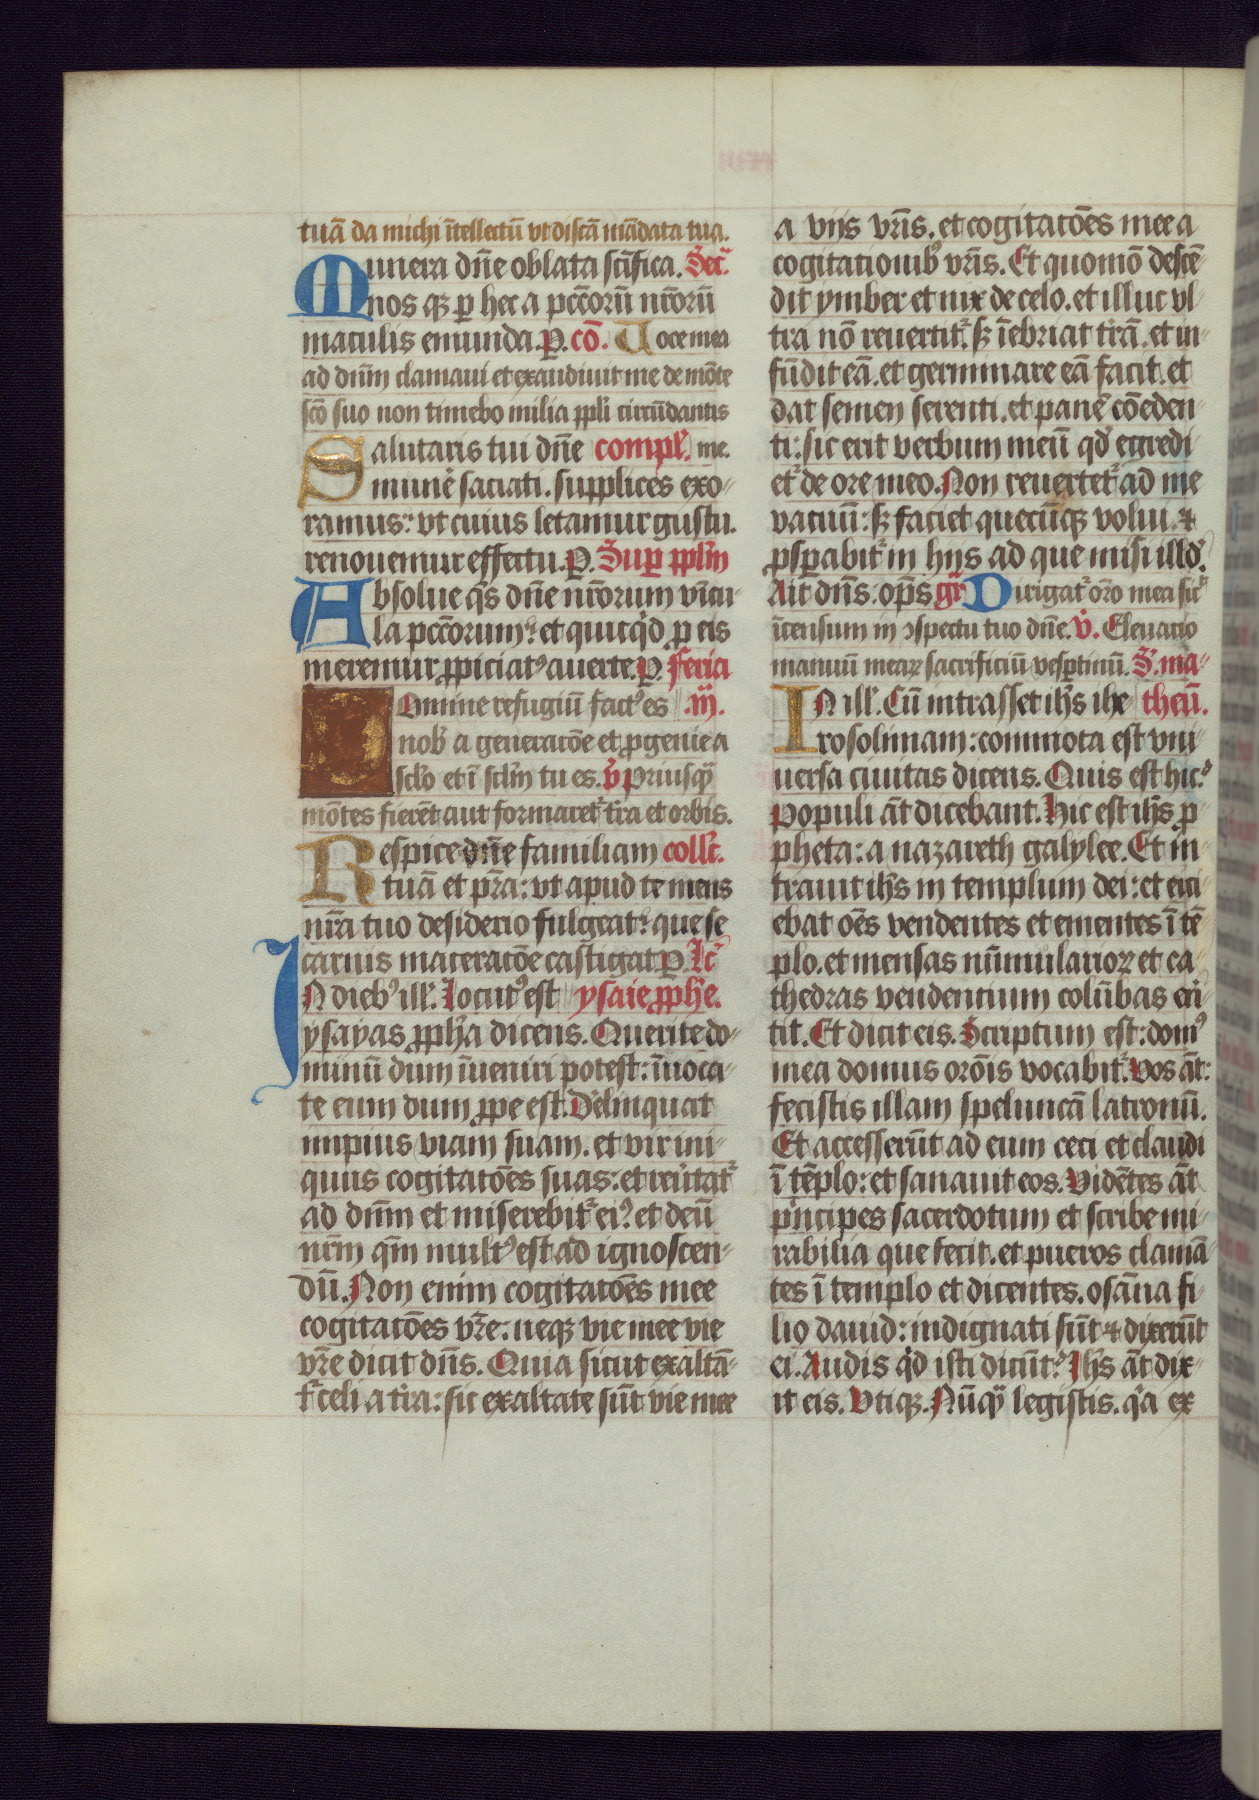 tuā da michi ītellectū vt discā mādata tua.
Munera dn̄e oblata scīfica. Secͣ.
nos qꝫ ꝑ hec a pccōrū nrōrū
maculis emūnda. P. cō. Uoce mea
ad dn̄m clamaui et exaudiuit me de mōte
scō suo non timebo milia ppl̄i circūdantis
Salutaris tui dn̄e compl̄. me.
munēe saciati. supplices exo-
ramus: vt cuius letamur gustu.
renouemur effectu. P. Sup ppl̄m
Absolue qs̄ dn̄e nrōrum vīcu-
la pccōrum: et quicqͥd ꝓ eis
meremur ꝓpiciatꝰ auerte. P. feria
Domine refugiū factꝰ es .iijͣ.
nob̄ a generacōe et ꝓgenie a
scl̄o et ī scl̄m tu es. v̄ Priusqͣ
mōtes fierēt aut formaretᷣ tr̄a et orbis.
Respice dn̄e familiam coll̄c.
tuā et pr̄a: vt apud te mens
nrā tuo desiderio fulgeat: que se
carnis maceracōe castigat P. lc̄
IN diebꝰ ill̄. locutꝰ est ysaie ꝓph̄e.
ysayas ꝓph̄a dicens. Querite do-
minū dum īueniri potest: īuoca-
te eum dum ꝓpe est. Delinquat
impius viam suam. et vir ini-
quus cogitatōes suas: et reūtatᷣ
ad dn̄m et miserebitᷣ ei? et deū
nr̄m qm̄ multꝰ est ad ignoscen-
dū. Non enim cogitatōes mee
cogitatōes vr̄e: neqꝫ vie mee vie
vr̄e dicit dn̄s. Quia sicut exaltā-
tᷣ celi a tr̄a: sic exaltate sūt vie mee
a vijs vrīs. et cogitatōes mee a
cogitationibꝰ vrīs. Et quomō descē-
dit ymber et nix de celo. et illuc vl-
tra nō reuertitᷣ. sꝫ īebriat tr̄ā. et in-
fūdit eā. et germinare eā facit. et
dat semen serenti. et panē cōeden-
ti: sic erit verbum meū qd̄ egredi-
etᷣ de ore meo. Non reuertetᷣ ad me
vacuū: sꝫ faciet quecūqꝫ volui. ⁊
ꝓsperabitᷣ in hijs ad que misi illd̄.
Ait dn̄s. op̄s grͣ Dirigatᷣ orō mea sic̄
īcensum in ↄspectu tuo dn̄e. v̄. Eleuacio
manuū mearꝝ sacrificiū vesptinū. S. ma-
IN ill̄. Cū intrasset ih̄s ihe- theū.
rosolimam: commota est vni-
uersa ciuitas dicens. Quis est hic?
Populi āt dicebant. Hic est ih̄s ꝓ-
pheta: a nazareth galylee. Et in-
trauit ih̄s in templum dei: et eici-
ebat oēs vendentes et ementes ī tē-
plo. et mensas nūmulariorꝝ et ca-
thedras vendentium colūbas eū-
tit. Et dicit eis. Scriptum est: domꝰ
mea domus orōis vocabitᷣ. Vos āt:
fecistis illam speluncā latronū.
Et accesserūt ad eum ceci et claudi
ī tēplo: et sanauit eos. Vidētes āt
pͥncipes sacerdotum et scribe mi-
rabilia que fecit. et pueros clamā-
tes ī templo et dicentes. osāna fi-
lio dauid: indignati sūt ⁊ dixerūt
ei. Audis qͥd isti dicūt? Ih̄s āt dix-
it eis. Vtiqꝫ. Nūqͣ legistis. qͥa ex